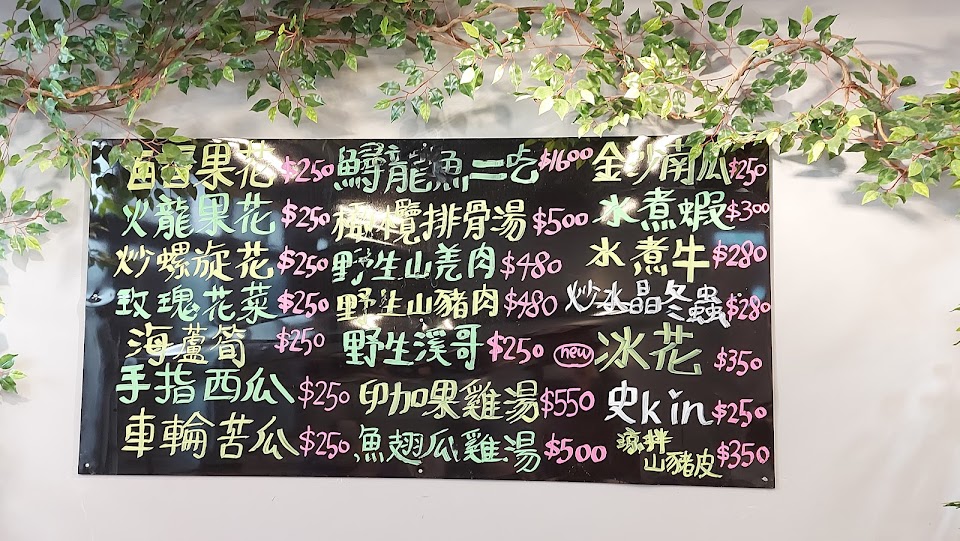 百香果花 $250
火龍果花 $250
炒螺旋花 $250
玫瑰花菜 $250
海蘆筍 $250
手指西瓜 $250
車輪苦瓜 $250
鱘龍魚二吃 $1600
橄欖排骨湯 $500
野生山羌肉 $480
野生山豬肉 $480
野生溪哥 $250
印加果雞湯 $550
魚翅瓜雞湯 $500
金沙南瓜 $250
水煮蝦 $300
水煮牛 $280
炒水晶冬蟲 $280
new 冰花 $350
史kin $250
涼拌
山豬皮 $350